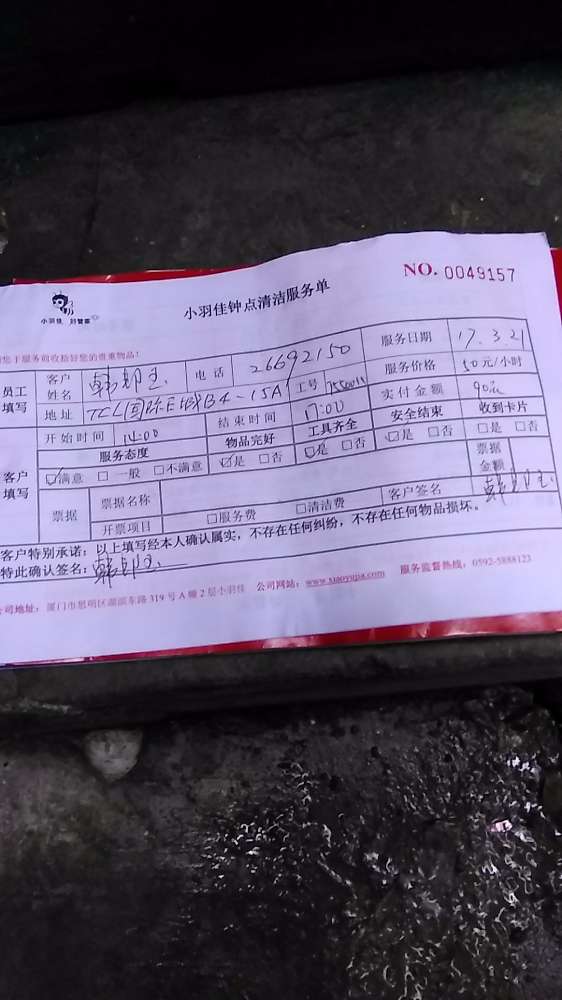 NO. 0049157
小羽佳 好管家
小羽佳钟点清洁服务单
您于服务前收拾好您的贵重物品!
服务日期 17.3.21
员工填写 客户姓名 电话 26692150 服务价格 50元/小时
地址 TCL国际E城B4-15A 工号 实付金额 90元
开始时间 14:00 结束时间 17:00 安全结束 收到卡片
服务态度 物品完好 工具齐全 ☑是 □否 □是 □否
客户填写 ☑满意 □一般 □不满意 ☑是 □否 ☑是 □否 票据金额
票据 票据名称 客户签名
开票项目 □服务费 □清洁费
客户特别承诺:以上填写经本人确认属实,不存在任何纠纷,不存在任何物品损坏。
特此确认签名:
公司地址:厦门市思明区湖滨东路319号A幢2层小羽佳 公司网站:www.xiaoyujia.com 服务监督热线:0592-5888123